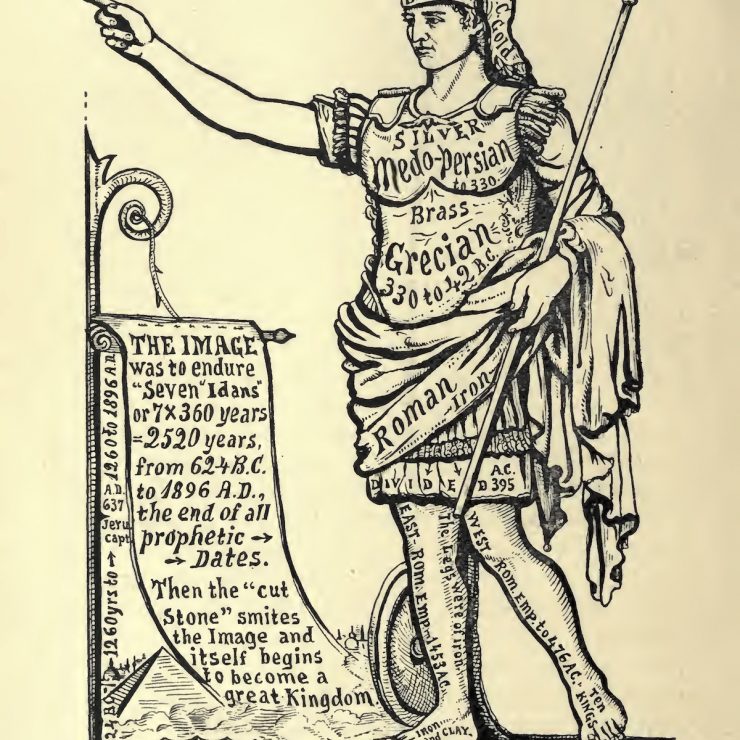 Gold
SILVER
Medo-Persian
to 330
Brass
Grecian
330 to 42 B.C.
Roman
Iron
DIVIDED
A.C.
395
EAST-ROM. EMP-1453 A.C.
The Legs were of iron
WEST ROM. EMP. to 476 A.C.
TEN
KINGS
IRON
and CLAY.
THE IMAGE
was to endure
"Seven" Idans"
or 7×360 years
=2520 years,
from 624 B.C.
to 1896 A.D.,
the end of all
prophetic →
→ Dates.
Then the "cut
Stone" smites
the Image and
itself begins
to become a
great Kingdom.
1260 to 1896 A.D.
A.D.
637
Jeru.
capt
1260 yrs to →